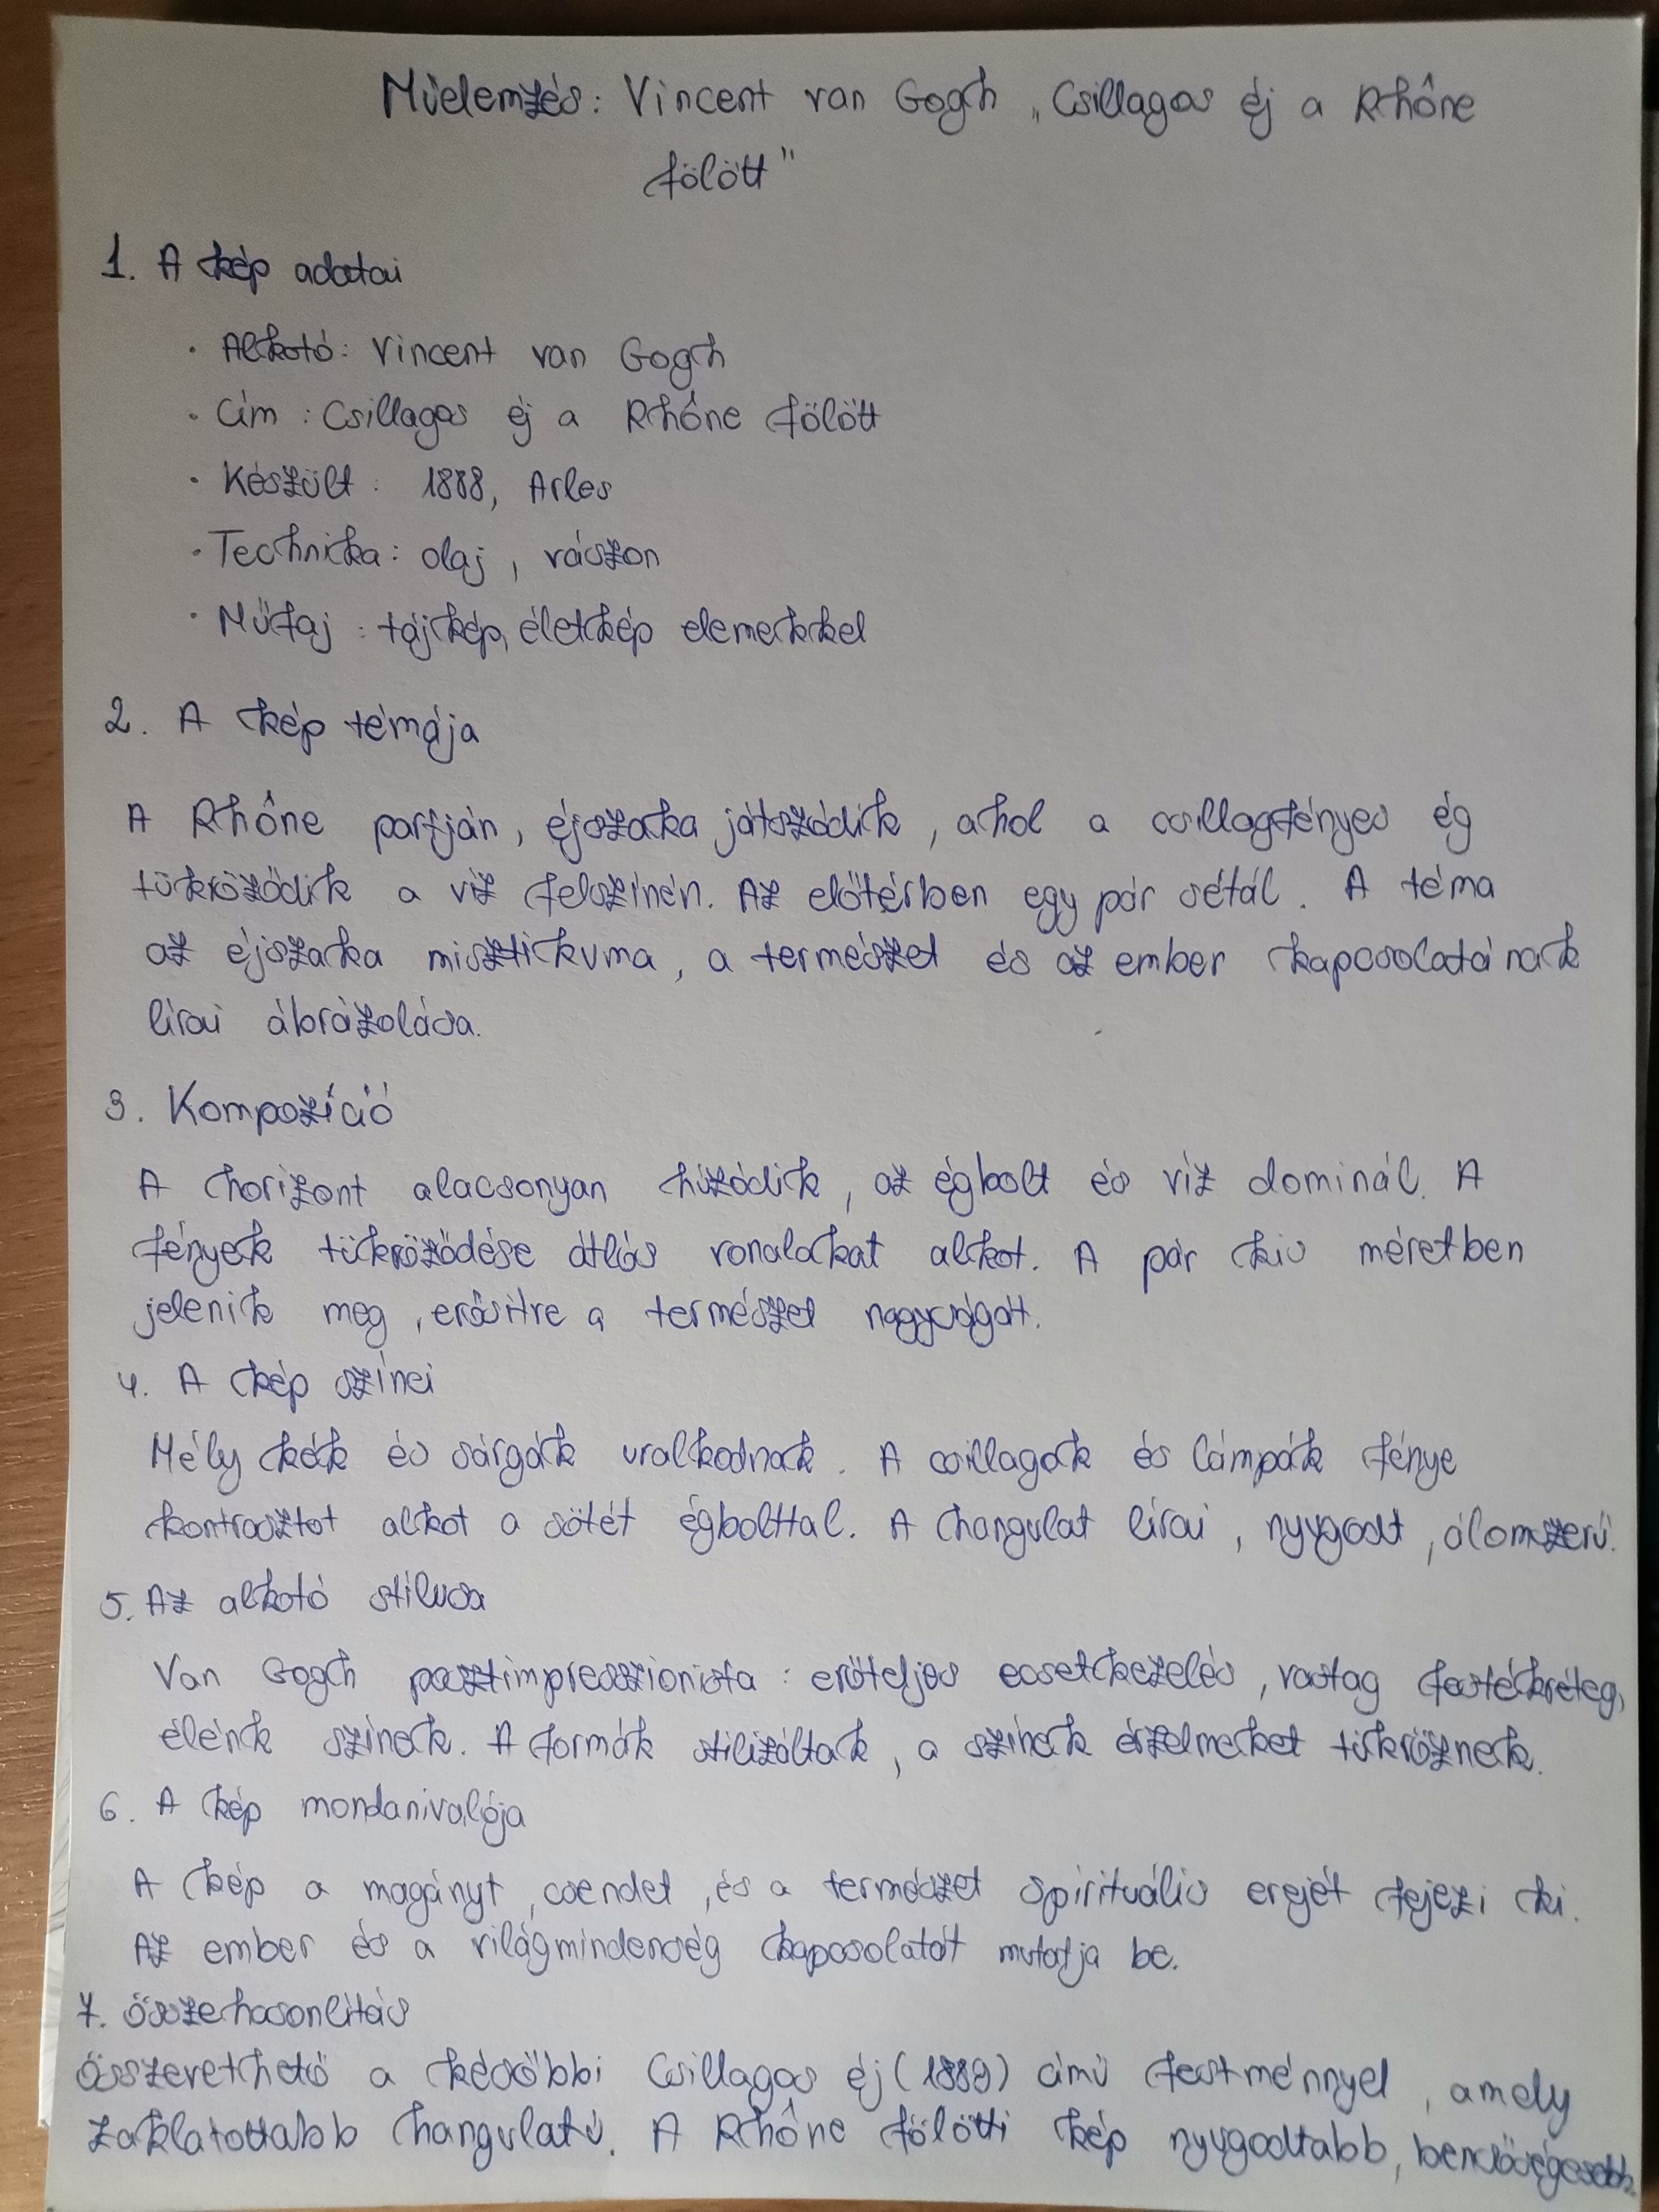 Műelemzés: Vincent van Gogh „Csillagos éj a Rhône
fölött"
1. A kép adatai
· Alkotó: Vincent van Gogh
· Cím: Csillagos éj a Rhône fölött
· Készült: 1888, Arles
· Technika: olaj, vászon
· Műfaj: tájkép, életkép elemekkel
2. A kép témája
A Rhône partján, éjszaka játszódik, ahol a csillagfényes ég
tükröződik a víz felszínén. Az előtérben egy pár sétál. A téma
az éjszaka misztikuma, a természet és az ember kapcsolatának
lírai ábrázolása.
3. Kompozíció
A horizont alacsonyan húzódik, az égbolt és víz dominál. A
fények tükröződése átlós vonalakat alkot. A pár kis méretben
jelenik meg, erősítve a természet nagyságát.
4. A kép színei
Mély kék és sárgák uralkodnak. A csillagok és lámpák fénye
kontrasztot alkot a sötét égbolttal. A hangulat lírai, nyugodt, álomszerű.
5. Az alkotó stílusa
Van Gogh posztimpresszionista: erőteljes ecsetkezelés, vastag festékréteg,
élénk színek. A formák stilizáltak, a színek érzelmeket tükröznek.
6. A kép mondanivalója
A kép a magányt, csendet, és a természet spirituális erejét fejezi ki.
Az ember és a világmindenség kapcsolatát mutatja be.
7. Összehasonlítás
Összevethető a későbbi Csillagos éj (1889) című festménnyel, amely
zaklatottabb hangulatú. A Rhône fölötti kép nyugodtabb, bensőségesebb.